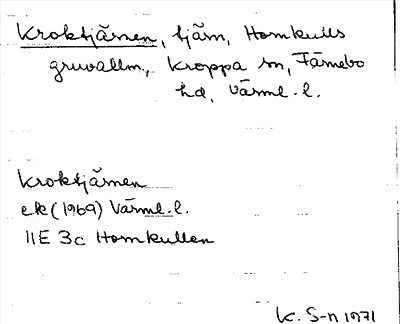 Kroktjärnen, tjärn, Hornkulls
gruvallm., Kroppa sn, Färnebo
hd, Värml. l.
Kroktjärnen
ek (1969) Värml. l.
11E 3c Hornkullen
K. S-n 1971